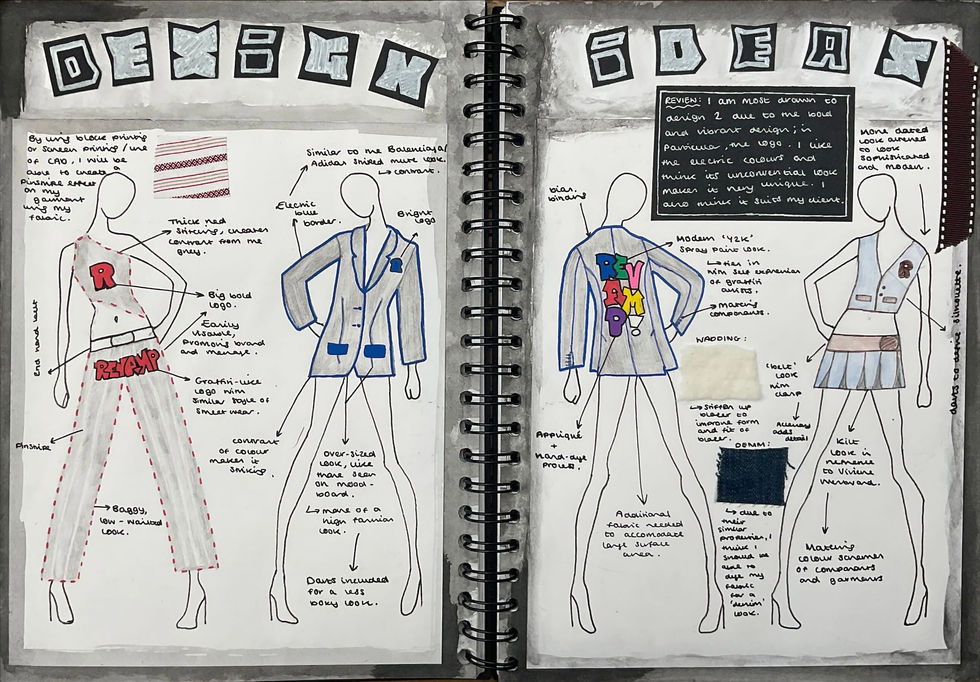 DESIGN
IDEAS
By using block printing
or screen printing / use
of CAD, I will be
able to create a
pinstripe effect
on my
garment
using my
fabric.
Thick red
stitching, creates
contrast from the
grey.
R
Big bold
logo.
Easily
visable,
promoting brand
and message.
End hand belt
REVAMP
Graffiti-like
logo with
similar style of
street wear.
Pinstripe
Baggy,
low-waisted
look.
Similar to the Balenciaga/
Adidas skirted suit look.
↳ contrast.
Electric
blue
border.
Bright
logo
R
contrast
of colour
makes it
striking.
Over-sized
look, like
those seen
on mood-
board.
↳ more of a
high fashion
look.
Darts included
for a less
boxy look.
REVIEW: I am most drawn to
design 2 due to the bold
and vibrant design; in
particular, the logo. I like
the electric colours and
think its unconventional look
makes it very unique. I
also think it suits my client.
bias
binding
REV
AM
P!
Modern 'Y2K'
spray paint look.
↳ ties in
with self expression
of graffiti
artists.
Matching
components.
WADDING:
↳ stiffen up
blazer to
improve form
and fit of
blazer.
Appliqué
+
Hand-dye
process.
Additional
fabric needed
to accomodate
large surface
area.
DENIM:
↳ due to
their
similar
properties, I
think I
should be
able to
dye my
fabric
for a
'denim'
look.
More dated
look altered
to look
sophisticated
and modern.
R
'belt'
look
with
clasp
Accessory
adds
detail
Kilt
look in
reference
to Viviene
Westwood.
Matching
colour schemes
of components
and garments
darts to define silhouette.